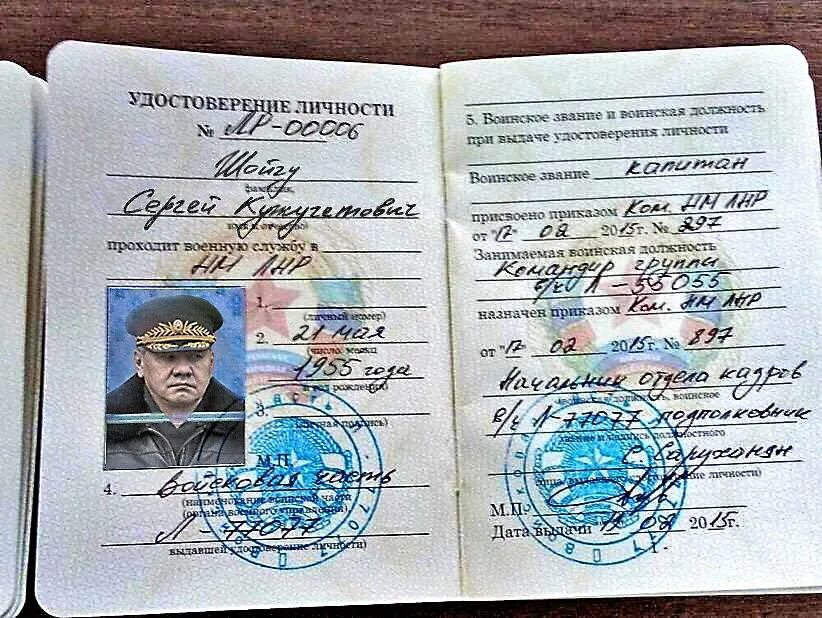 УДОСТОВЕРЕНИЕ ЛИЧНОСТИ
№ ЛР-00006
Шойгу
фамилия,
Сергей Кужугетович
имя и отчество)
проходит военную службу в
НМ ЛНР
1.
(личный номер)
2. 21 мая
(число, месяц
1955 года
и год рождения)
3.
(личная подпись)
М.П.
4. Войсковая часть
(наименование воинской части
(органа военного управления)
Л-77077
выдавшей удостоверение личности)
5. Воинское звание и воинская должность
при выдаче удостоверения личности
Воинское звание капитан
присвоено приказом Ком. НМ ЛНР
от "17" 02 2015г. № 297
Занимаемая воинская должность
Командир группы
в/ч Л-55055
назначен приказом Ком. НМ ЛНР
от "17" 02 2015г. № 897
Начальник отдела кадров
(воинская должность, воинское
в/ч Л-77077 подполковник
звание и подпись должностного
С. Саруханян
лица, удостоверение личности)
М.П.
Дата выдачи 02 2015г.